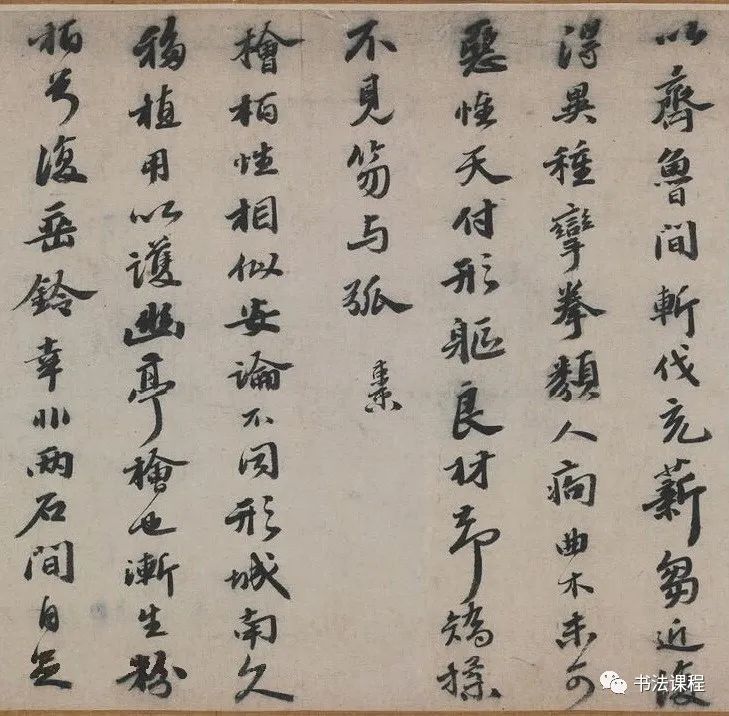 以齊魯間斬伐充薪芻近復
得異種攣拳類人痀曲木未可
惡惟天付形軀良材却矯揉
不見笏与弧 棗
檜栢性相似安論不同形城南久
移植用以護幽亭檜也漸生粉
栢兮復垂鈴幸非兩石間自足
书法课程